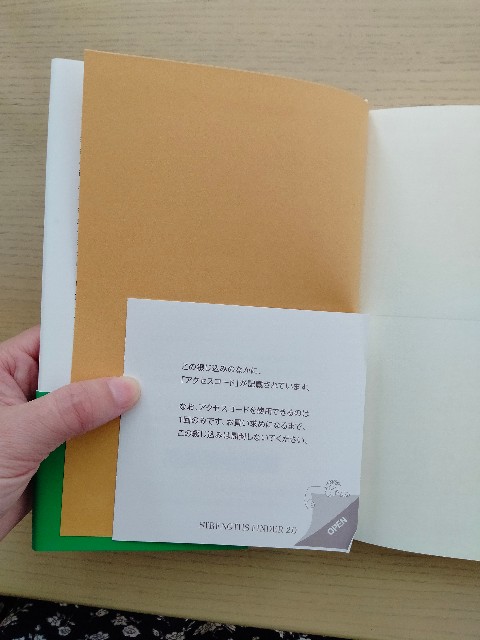 この綴じ込みのなかに、
「アクセスコード」が記載されています。
なお、アクセスコードを使用できるのは
1回のみです。お買い求めになるまで、
この綴じ込みは開封しないでください。
STRENGTHS FINDER 2.0
OPEN